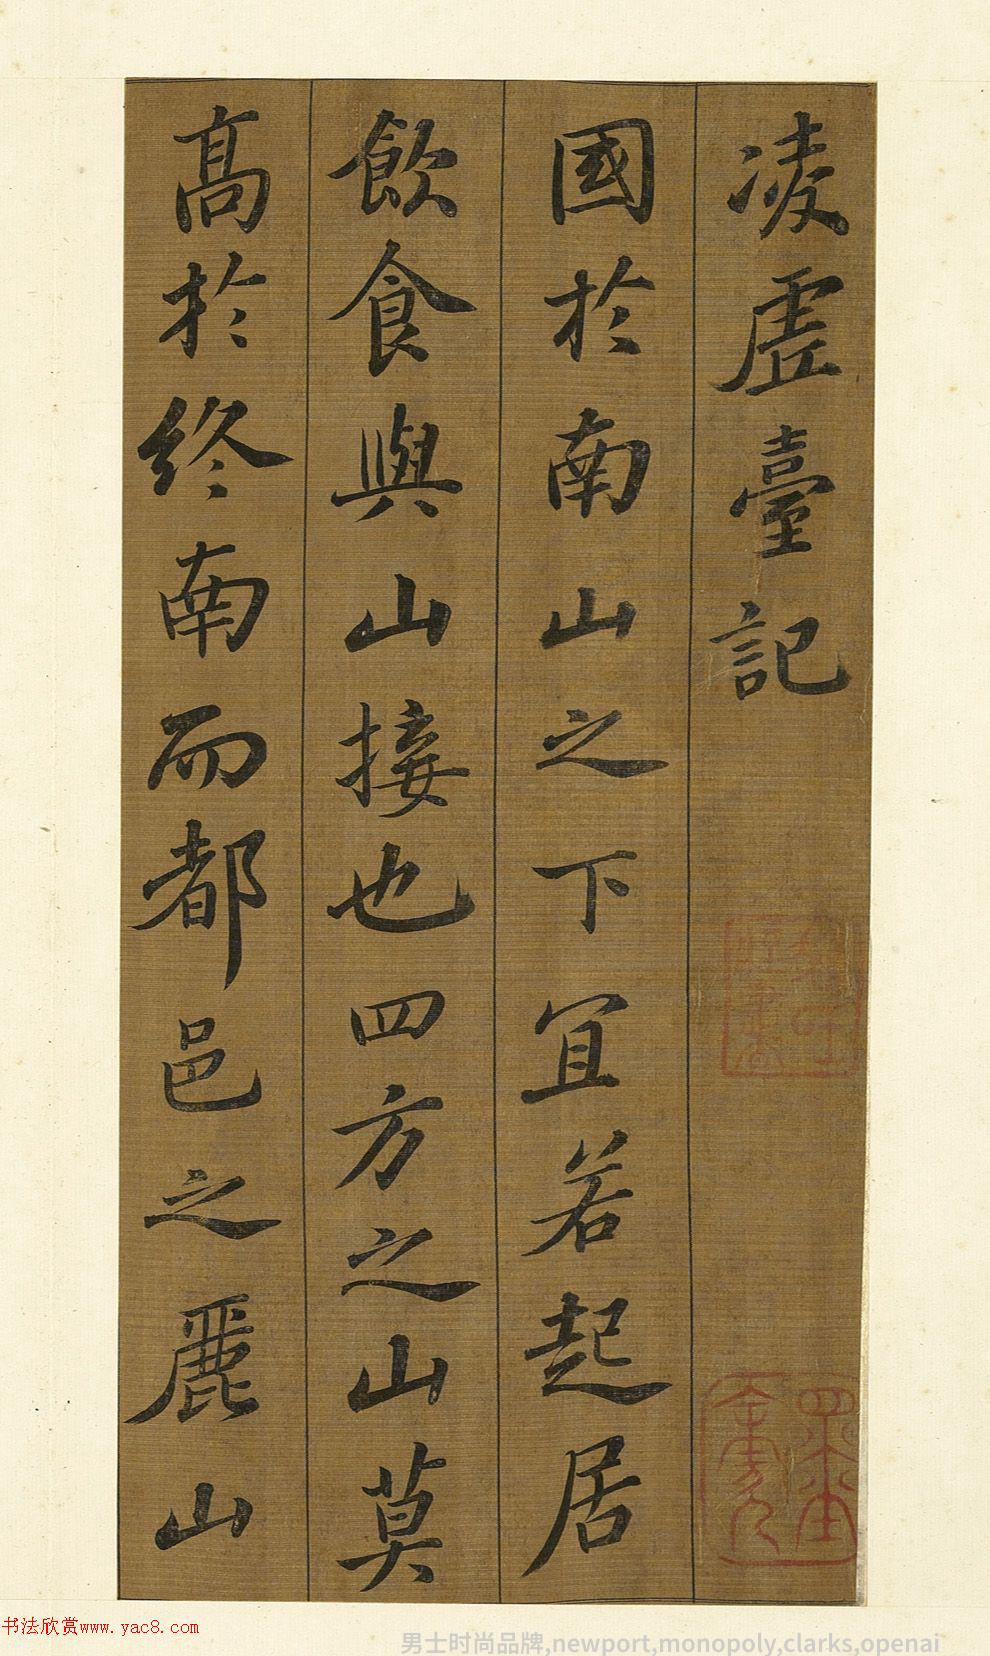 凌虛臺記
國於南山之下宜若起居
飲食與山接也四方之山莫
高於終南而都邑之麗山
书法欣赏www.yac8.com
男士时尚品牌,newport,monopoly,clarks,openai